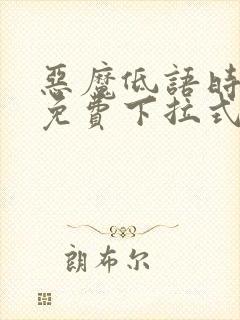 惡魔低語時
免費下拉式
朗布尔